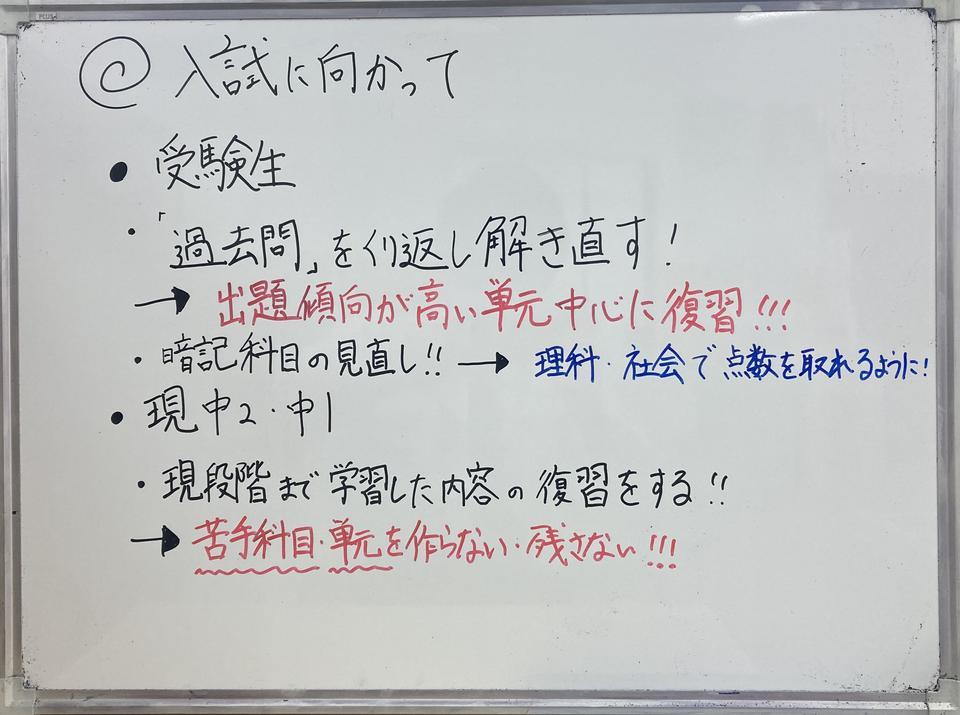 PLUS
@ 入試に向かって
● 受験生
・「過去問」をくり返し解き直す!
→ 出題傾向が高い単元中心に復習!!!
・暗記科目の見直し!! → 理科・社会で点数を取れるように!
● 現中2・中1
・現段階まで学習した内容の復習をする!!
→ 苦手科目・単元を作らない・残さない!!!